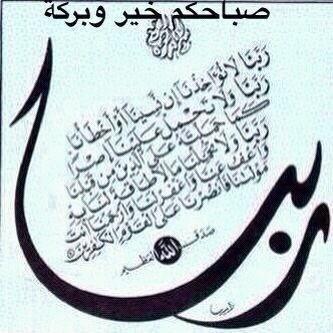 صباحكم خير وبركة
بسم الله الرحمن الرحيم
ربنا لا تؤاخذنا إن نسينا أو أخطأنا
ربنا ولا تحمل علينا إصرا
كما حملته على الذين من قبلنا
ربنا ولا تحملنا ما لا طاقة لنا به
واعف عنا واغفر لنا وارحمنا أنت
مولانا فانصرنا على القوم الكافرين
صدق الله العظيم
ربنا